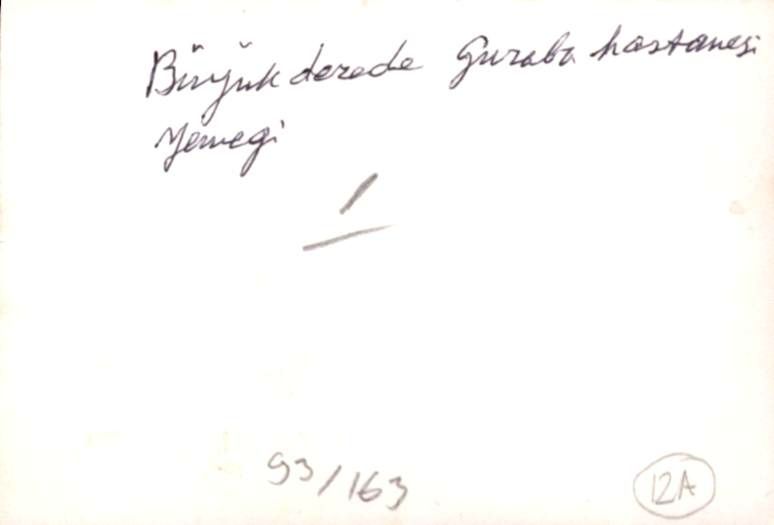 Büyük derede Guraba hastanesi
Yemegi
1
93/163
12A